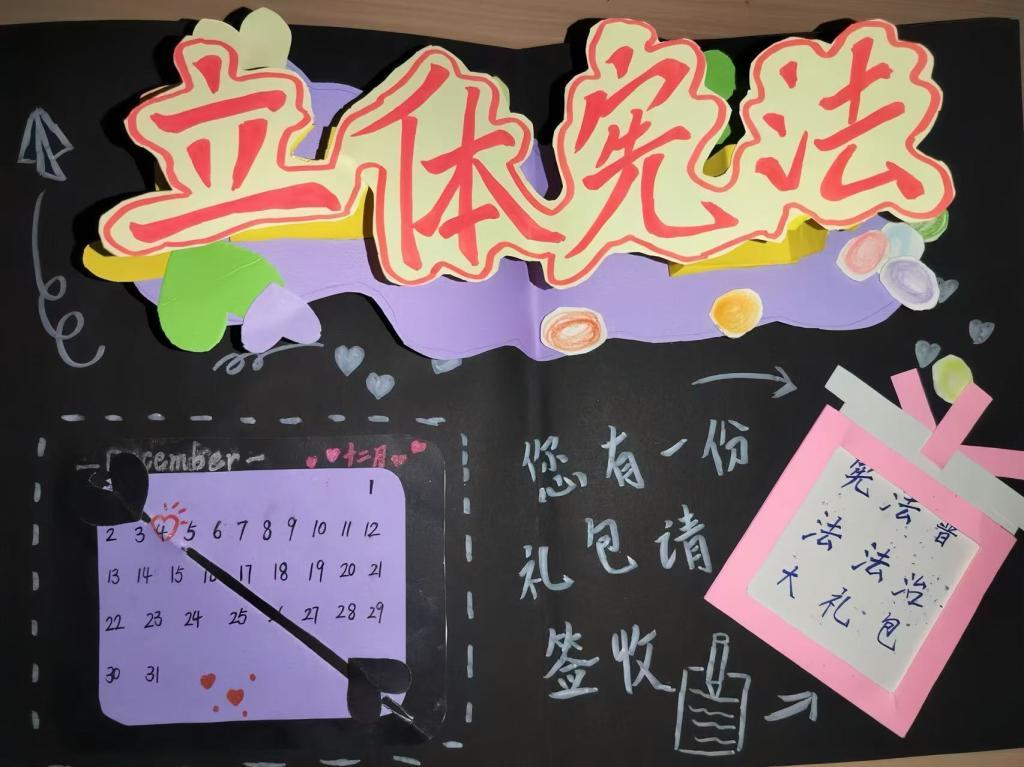 立体宪法
December
十二月
1
2 3 4 5 6 7 8 9 10 11 12
13 14 15 16 17 18 19 20 21
22 23 24 25 27 28 29
30 31
您有一份
礼包请
签收
宪法普
法法治
大礼包